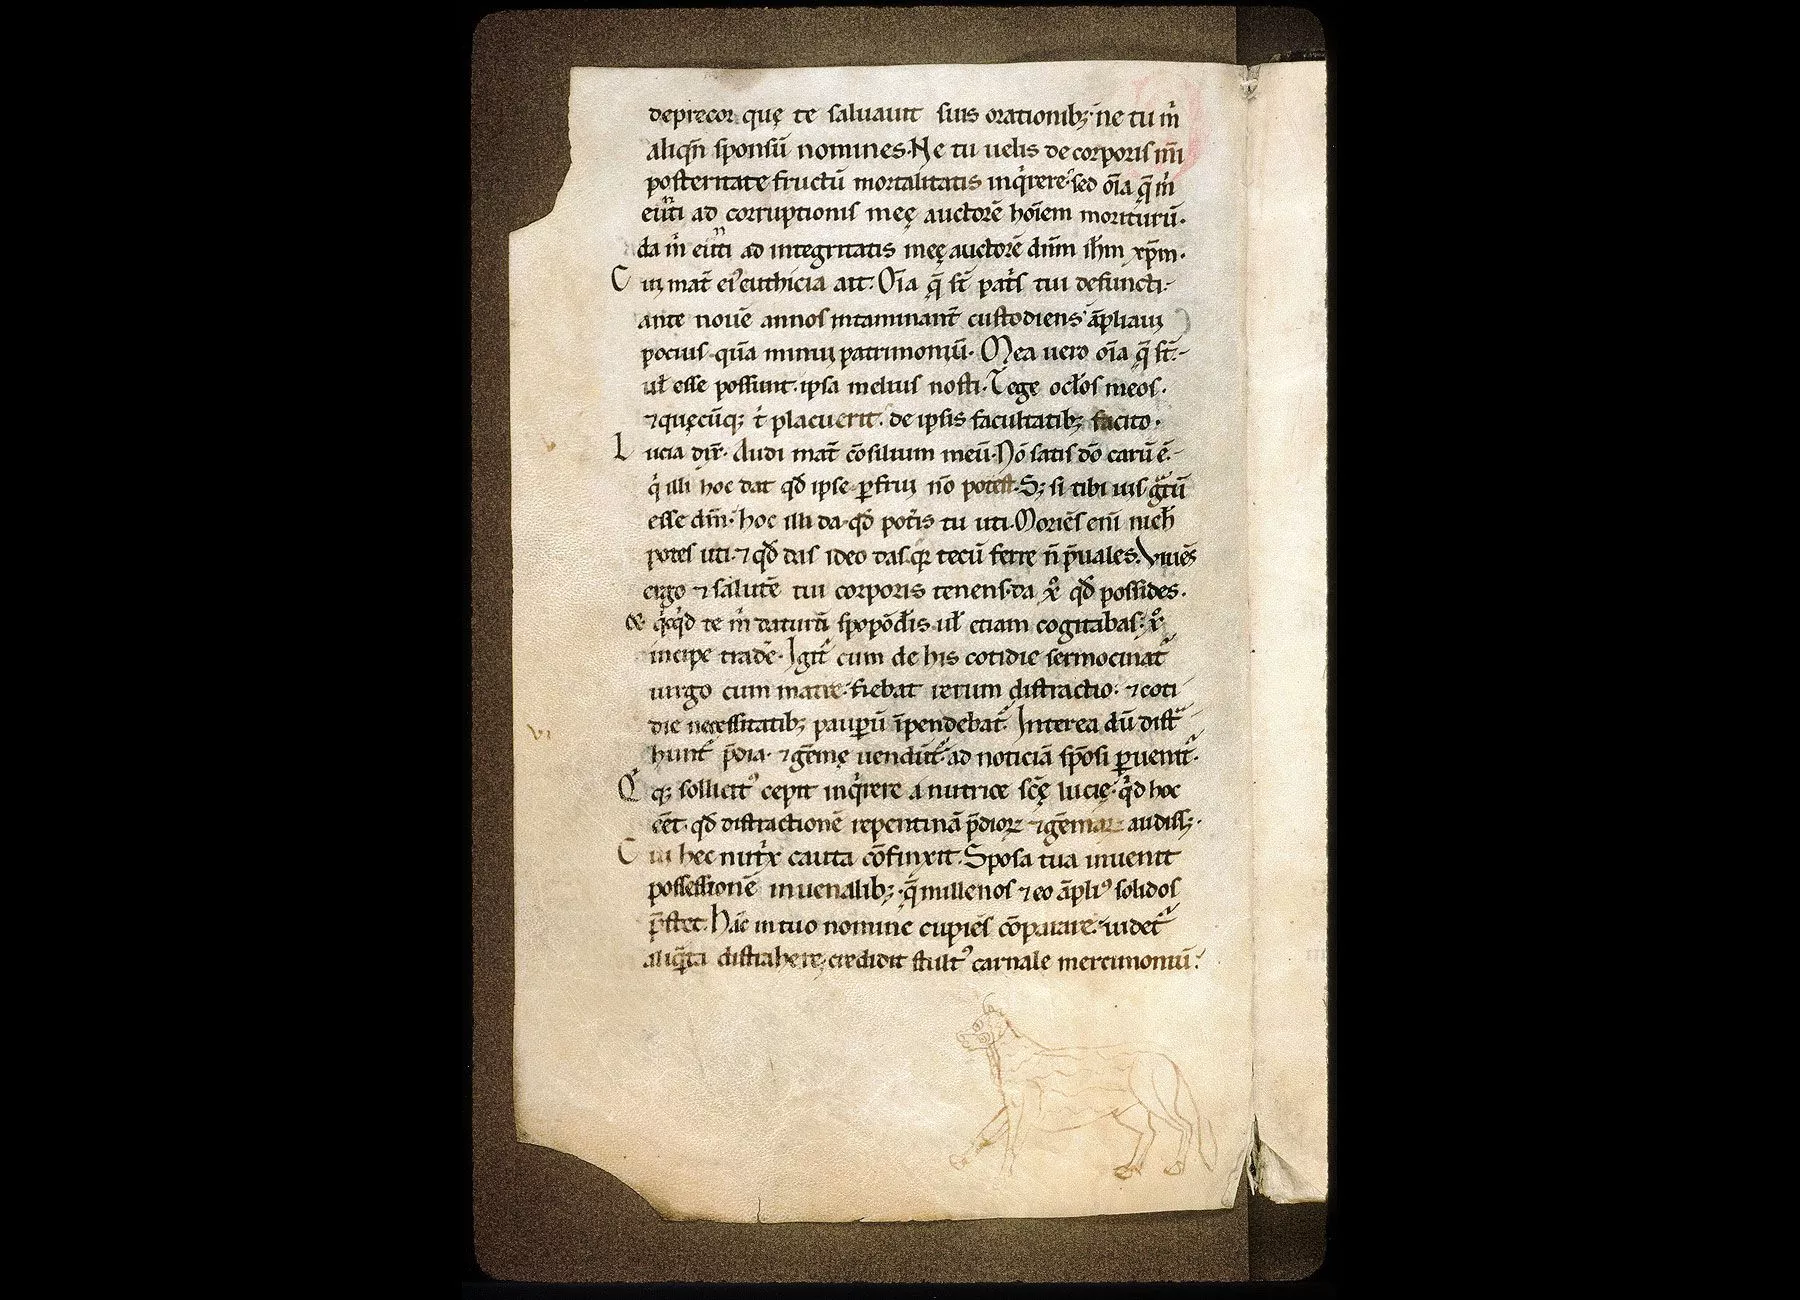 deprecor. quę te saluauit suis orationibꝫ· ne tu m̊
aliqn̄ sponsū nomines. Ne tu uelis de corporis mī
posteritate fructū mortalitatis inqͥrere· sed om̄a q̄ m̊
ad corruptionis meę auctorē hoīem moriturū.
da m̊ ad integritatis meę auctorē dn̄m ih̄m xp̄m.
Cui mat̄ ei' euthicia ait. Om̄a q̄ st̄ pat's tui defuncti.
ante nouē annos intaminant̄ custodiens' āpliaui
pocius quā minui patrimoniū. Mea uero om̄a q̄ st̄.
ut̄ esse possunt. ipsa melius nosti. Tege oc̄los meos.
⁊ quęcūqꝫ t̊ placuerit. de ipsis facultatibꝫ facito.
Lucia dix̄. Audi mat̄ cōsilium meū. Nō satis dō carū ē.
qͥ illi hoc dat qd̄ ipse ꝑfrui nō potest. Sꝫ si tibi uis gͣtū
esse dm̄. hoc illi da. qd̄ pot'is tu uti. Moriēs eni nich̄
potes uti. ⁊ qd̄ das ideo das. qꝛ tecū ferre n̄ p̄uales. Viuēs
ergo ⁊ salutē tui corporis tenens. da xͦ qd̄ possides.
& qͥcqͥd te m̊ daturā spopōdis ul̄ etiam cogitabas. xͦ
incipe trade'. Igit̄ cum de his cotidie sermocinat̄
uirgo cum matre. fiebat rerum distractio. ⁊ coti
die necessitatibꝫ pauꝑū īpendebat̄. Interea dū dist͛
hunt̄ p̄dia. ⁊ gēmę uendūt̄. ad noticiā spōsi ꝑuenit̄.
Qͥ qꝫ sollicit' cepit inqͥrere a nutrice sc̄ę lucię. qͥd hoc
eēt. qd̄ distractionē repentinā p̄dioꝝ ⁊ gēmaꝝ audissꝫ.
Cui hec nut'x cauta cōfinxit. Sposa tua inuenit
possessionē inuenalibꝫ. q̄ millenos ⁊ eo āpli' solidos
p̄stet. Hāc in tuo nomine cupiēs cōparare. uidet̄
aliqͣta distrahere. credidit stult' carnale mercimoniū.